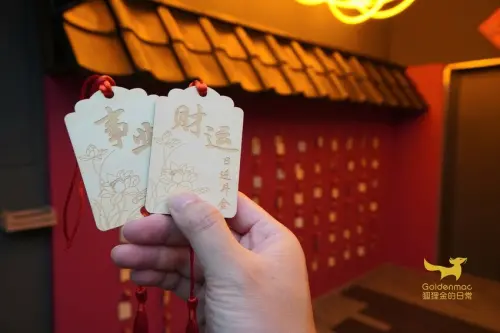 事业
财运
日进斗金
Goldenmac
狐狸金的日常